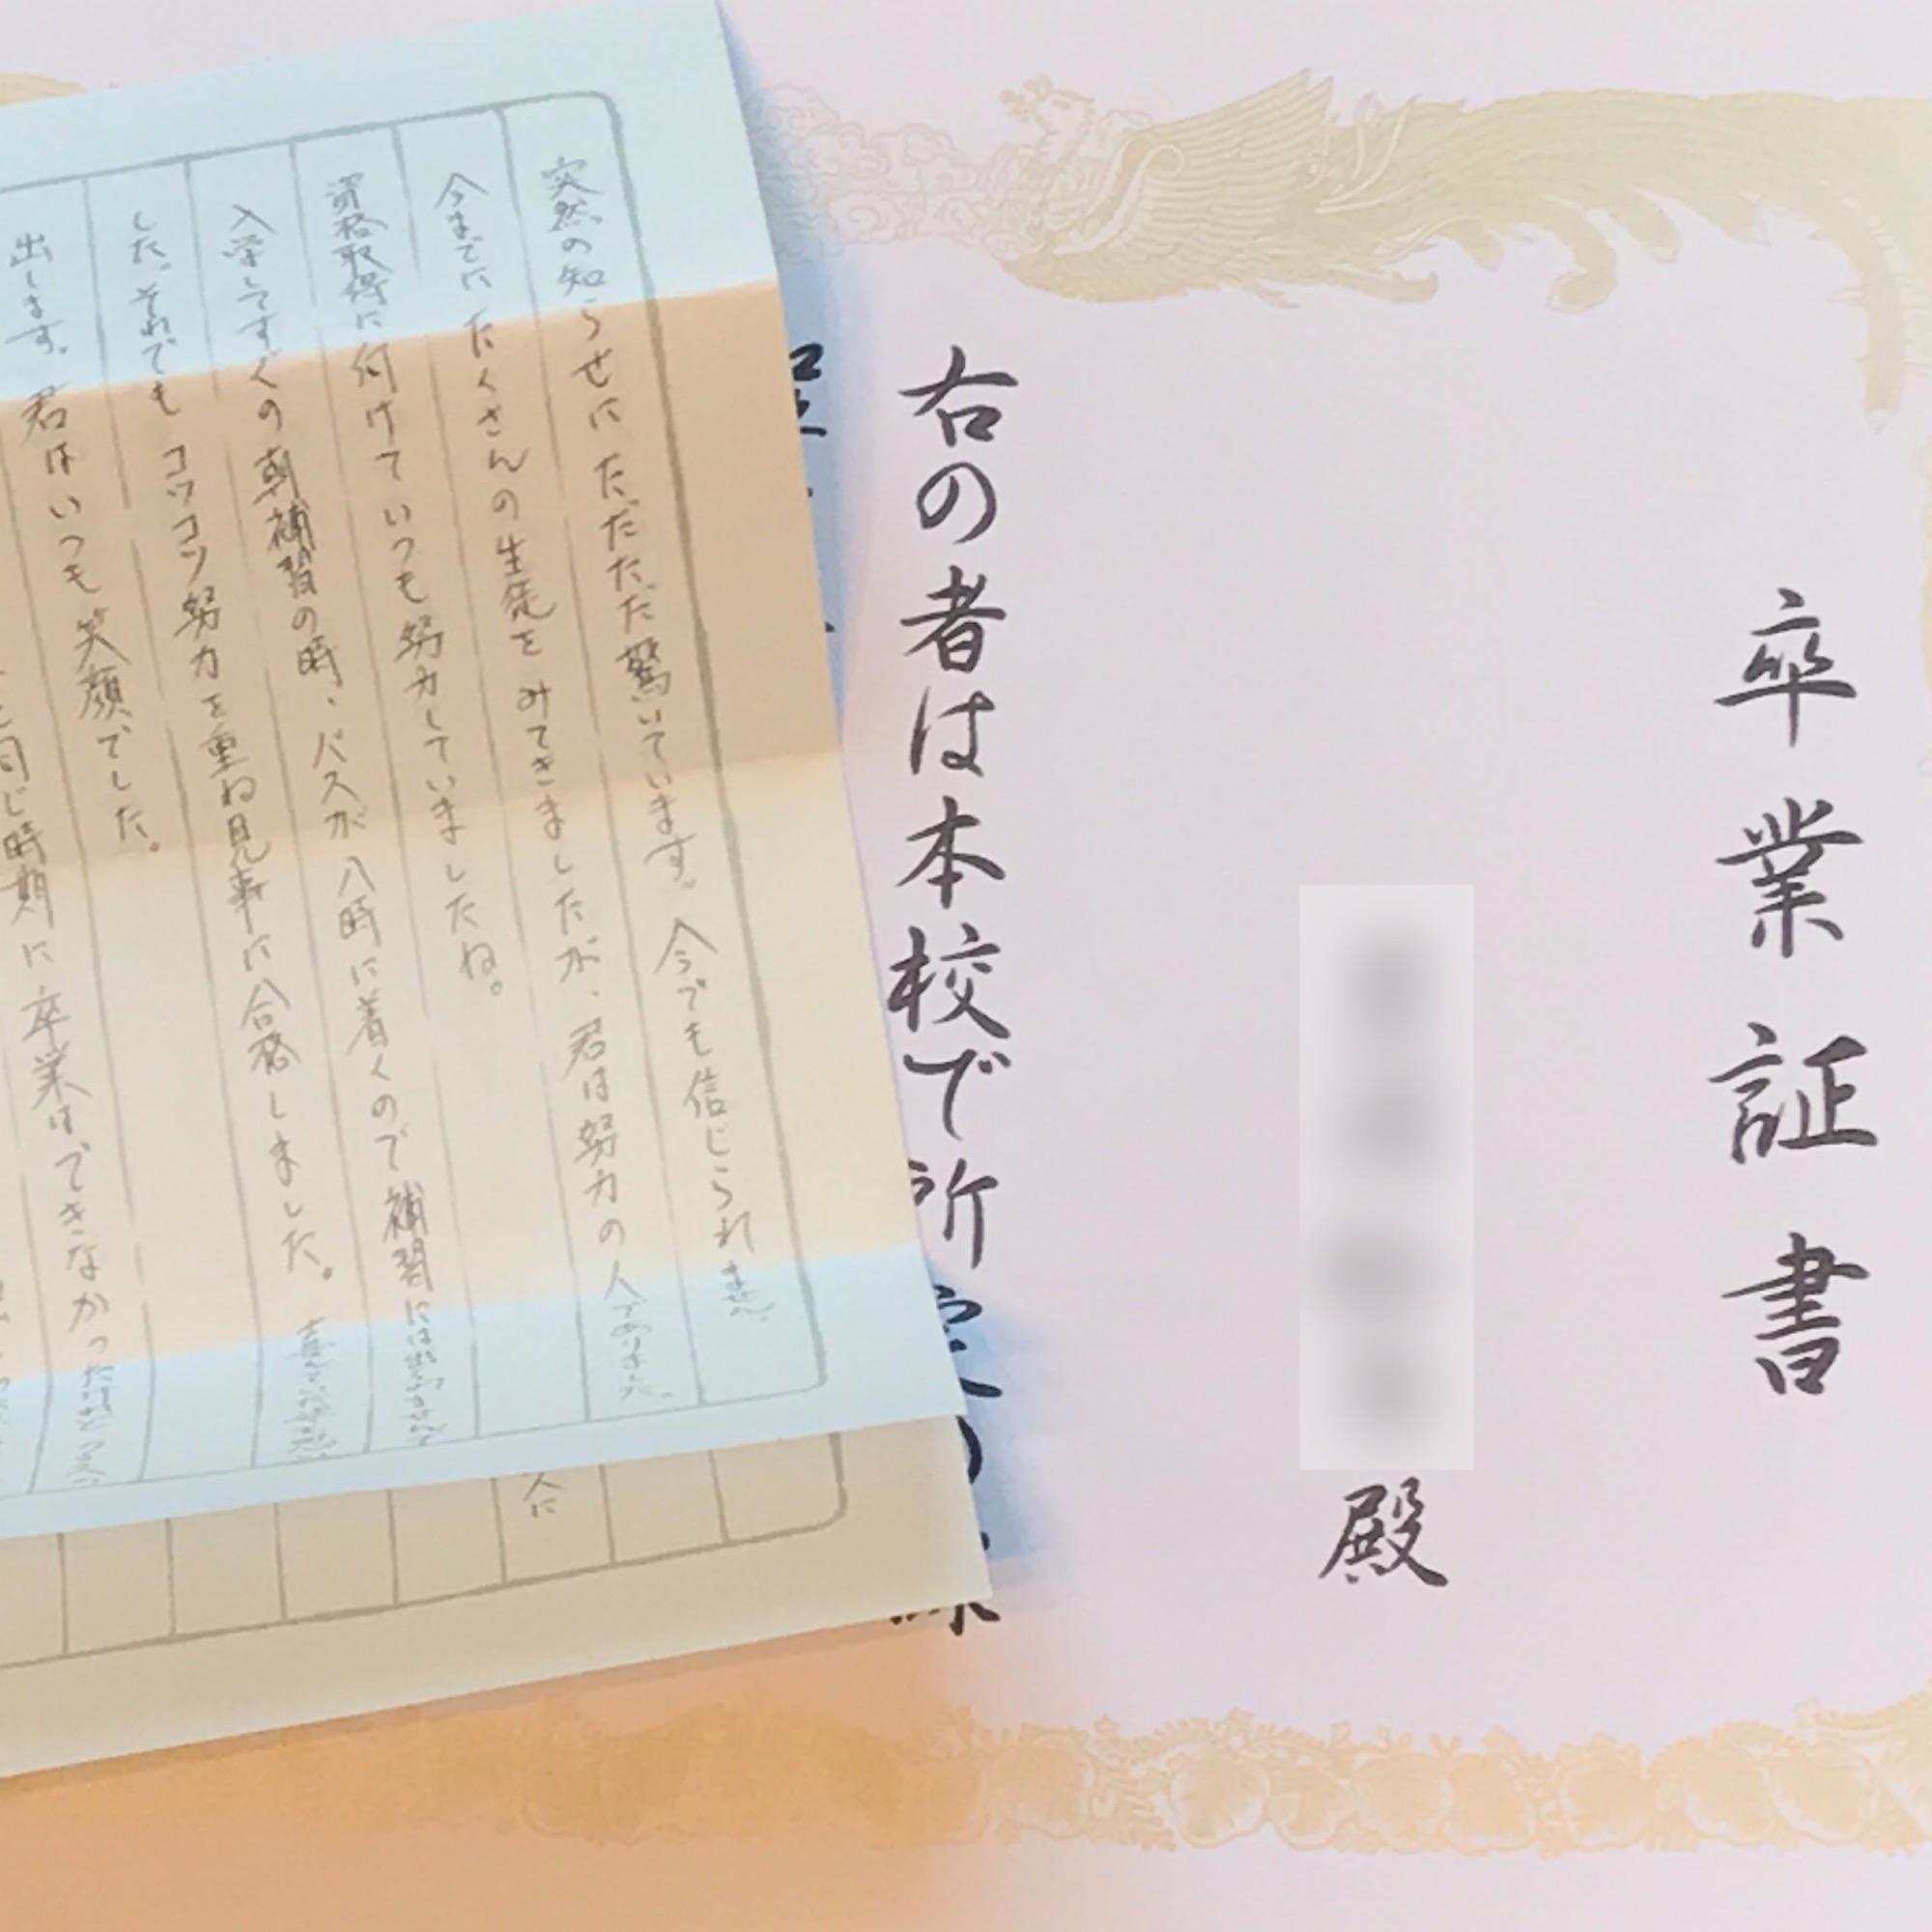 卒業証書
殿
右の者は本校で所定の
突然の知らせにただただ驚いています。今でも信じられません。
今までにたくさんの生徒をみてきましたが、君は努力の人でありました。
資格取得に向けていつも努力していましたね。
入学してすぐの朝補習の時、バスが八時に着くので補習には出られませんで
した。それでもコツコツ努力を重ね見事に合格しました。
出します。君はいつも笑顔でした。
同じ時期に卒業はできなかったけれど
人に